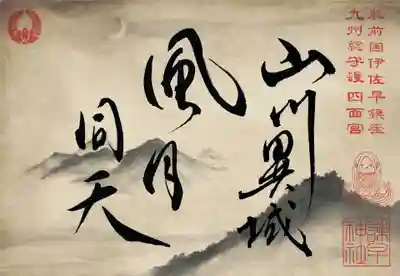 肥前国伊佐早鎮座
九州総守護四面宮
山川異域
風月同天
諫早神社